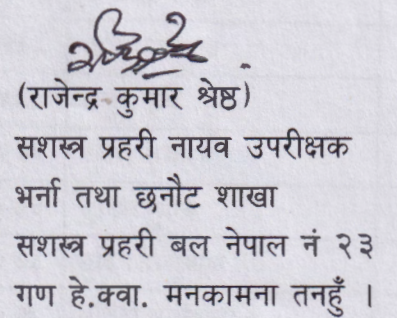 (राजेन्द्र कुमार श्रेष्ठ)
सशस्त्र प्रहरी नायव उपरीक्षक
भर्ना तथा छनौट शाखा
सशस्त्र प्रहरी बल नेपाल नं २३
गण हे.क्वा. मनकामना तनहुँ ।